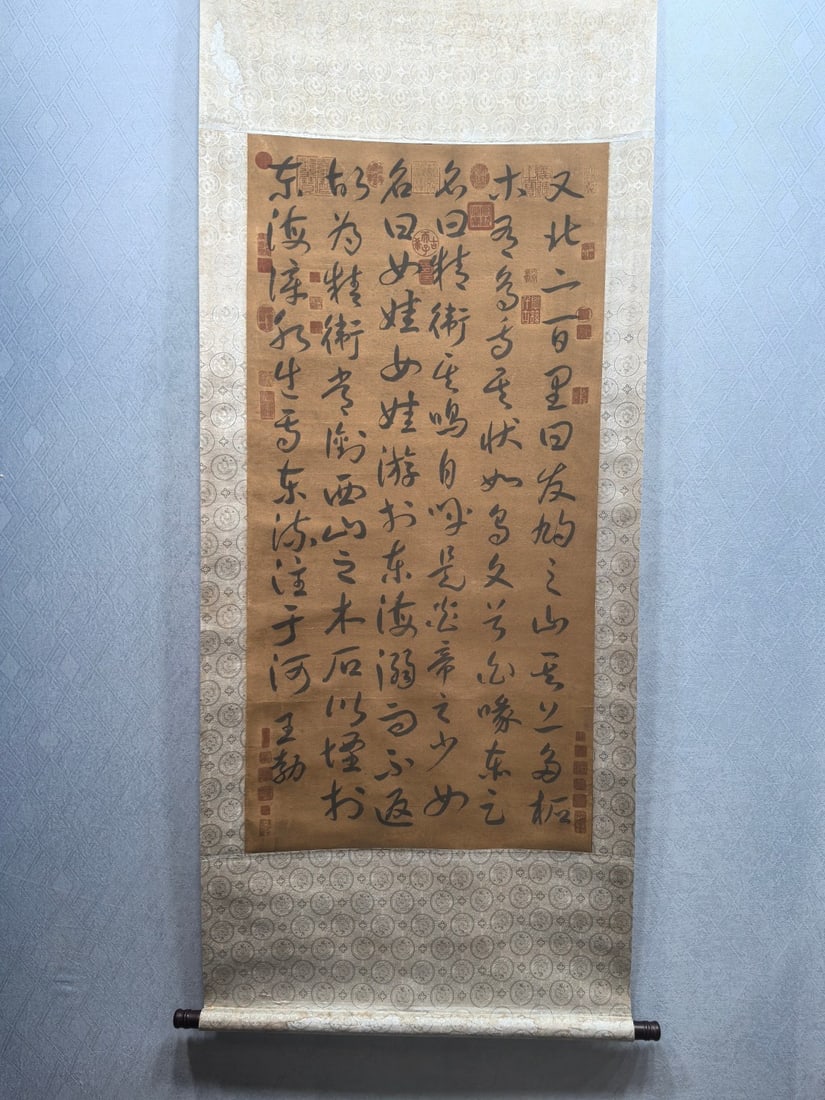 又北二百里曰發鳩之山其上多柘
木有鳥焉其狀如烏文首白喙赤足
名曰精衛其鳴自呼是炎帝之少女
名曰女娃女娃游於東海溺而不返
故為精衛常銜西山之木石以堙於
東海漳水出焉東流注于河 王勃